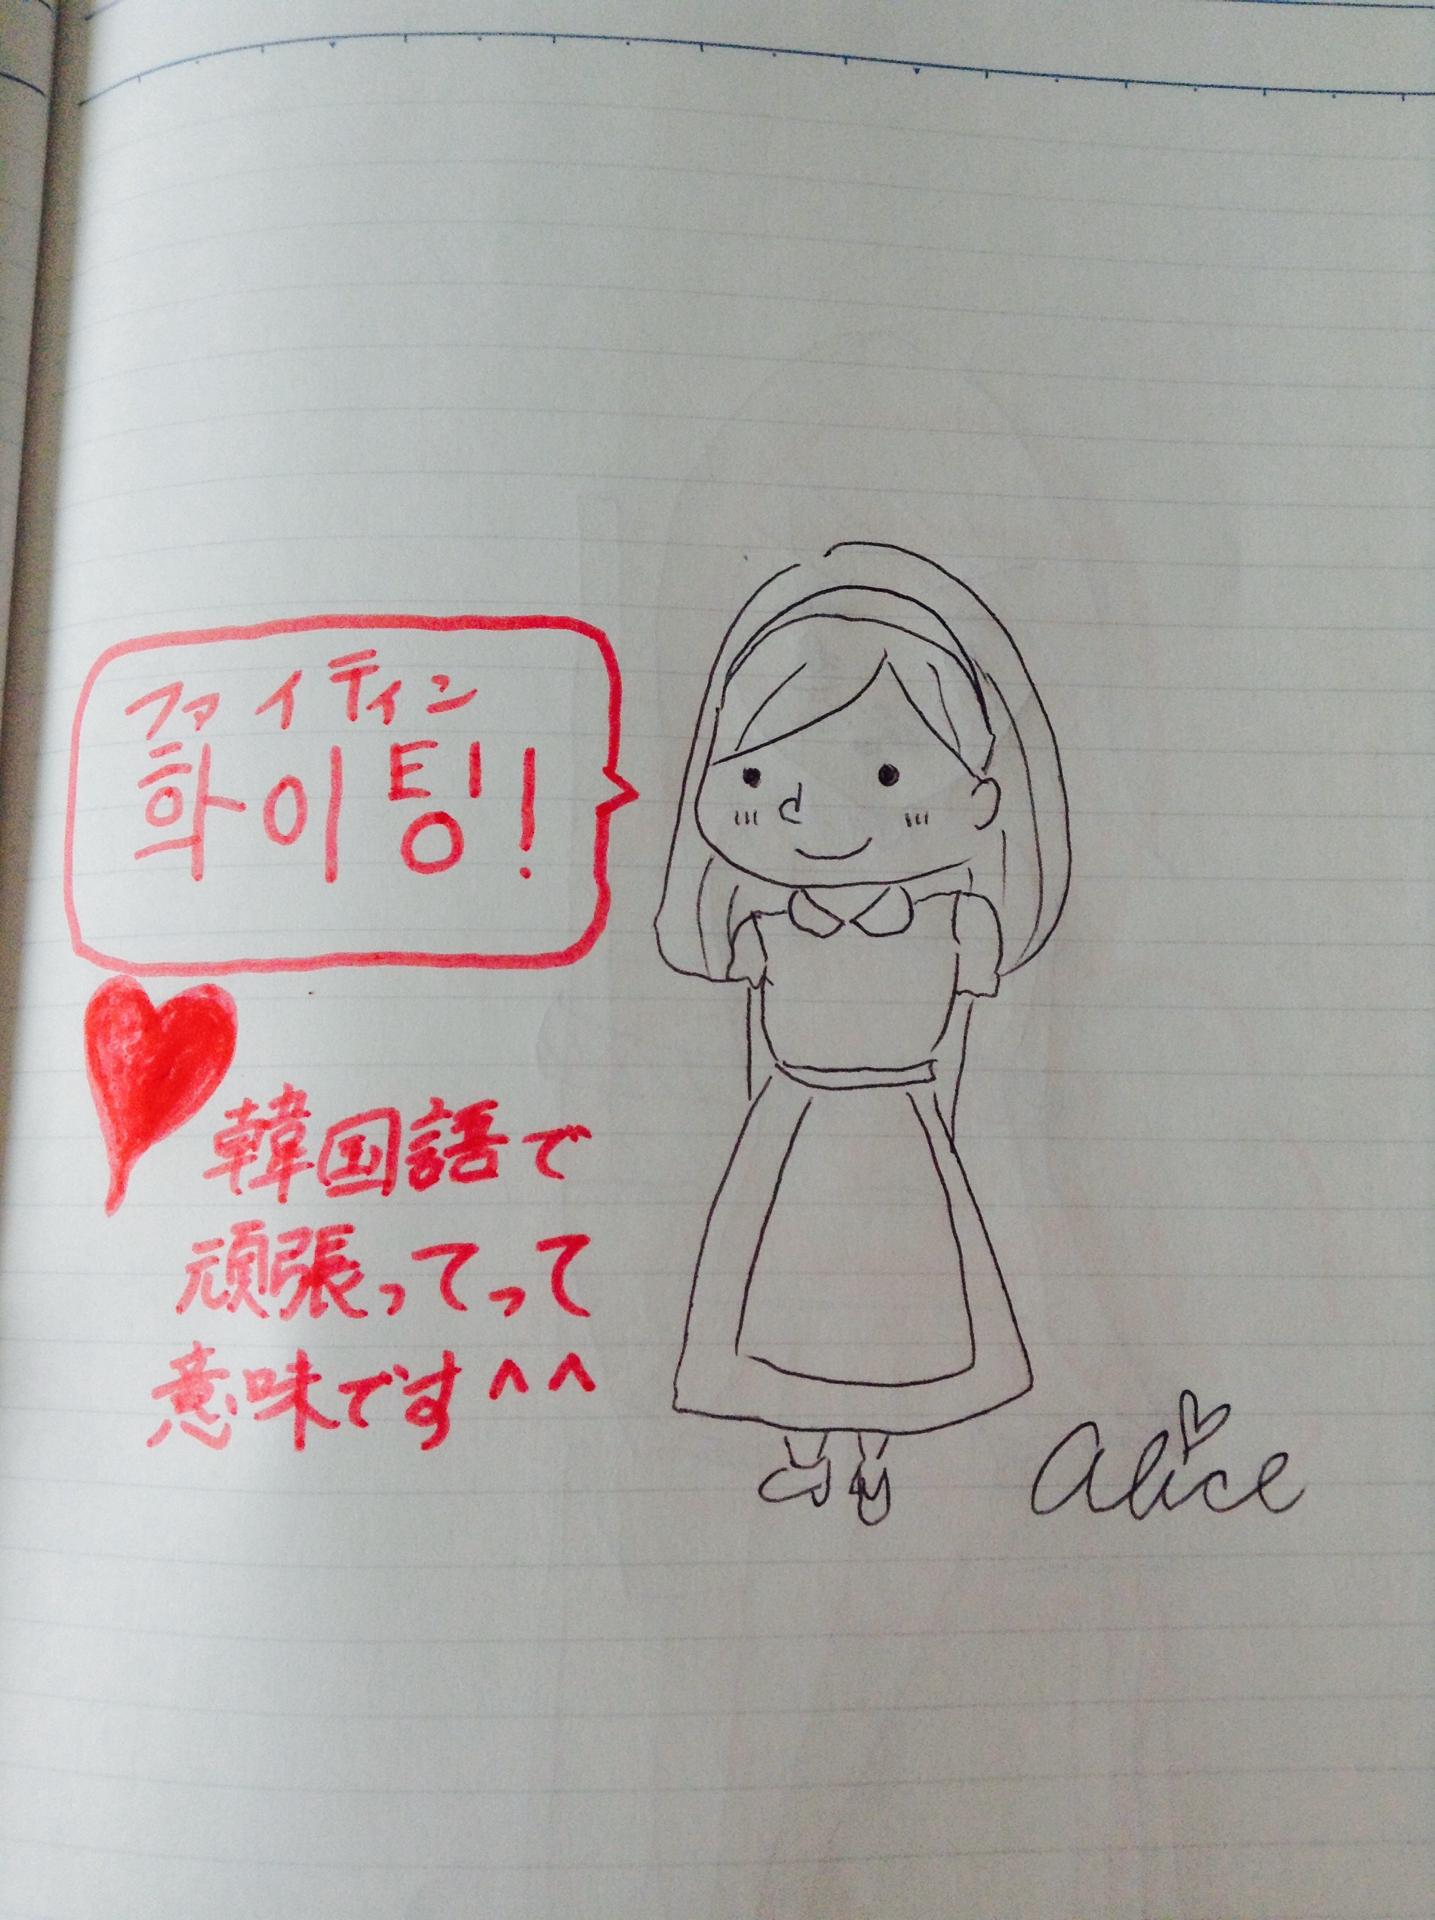 ファイティン
화이팅!
韓国語で
頑張ってって
意味です^^
alice